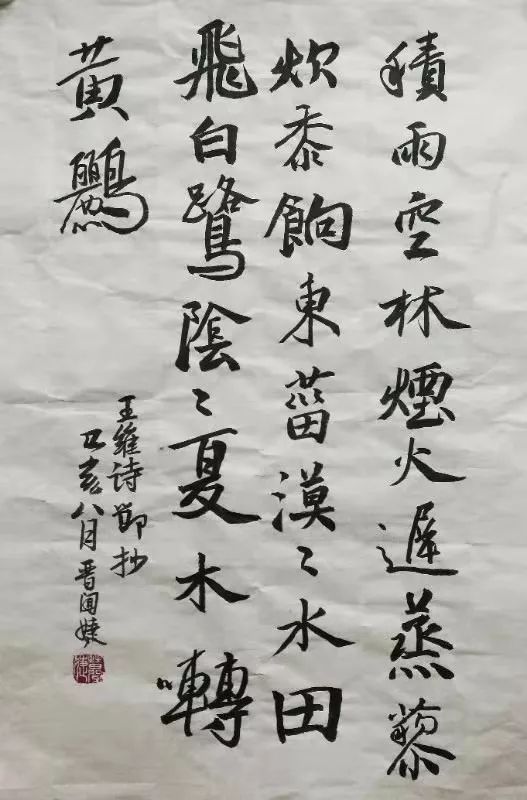 積雨空林煙火遲蒸藜
炊黍餉東菑漠〻水田
飛白鷺陰〻夏木囀
黃鸝
王維詩節抄
己亥八月晋聞婕